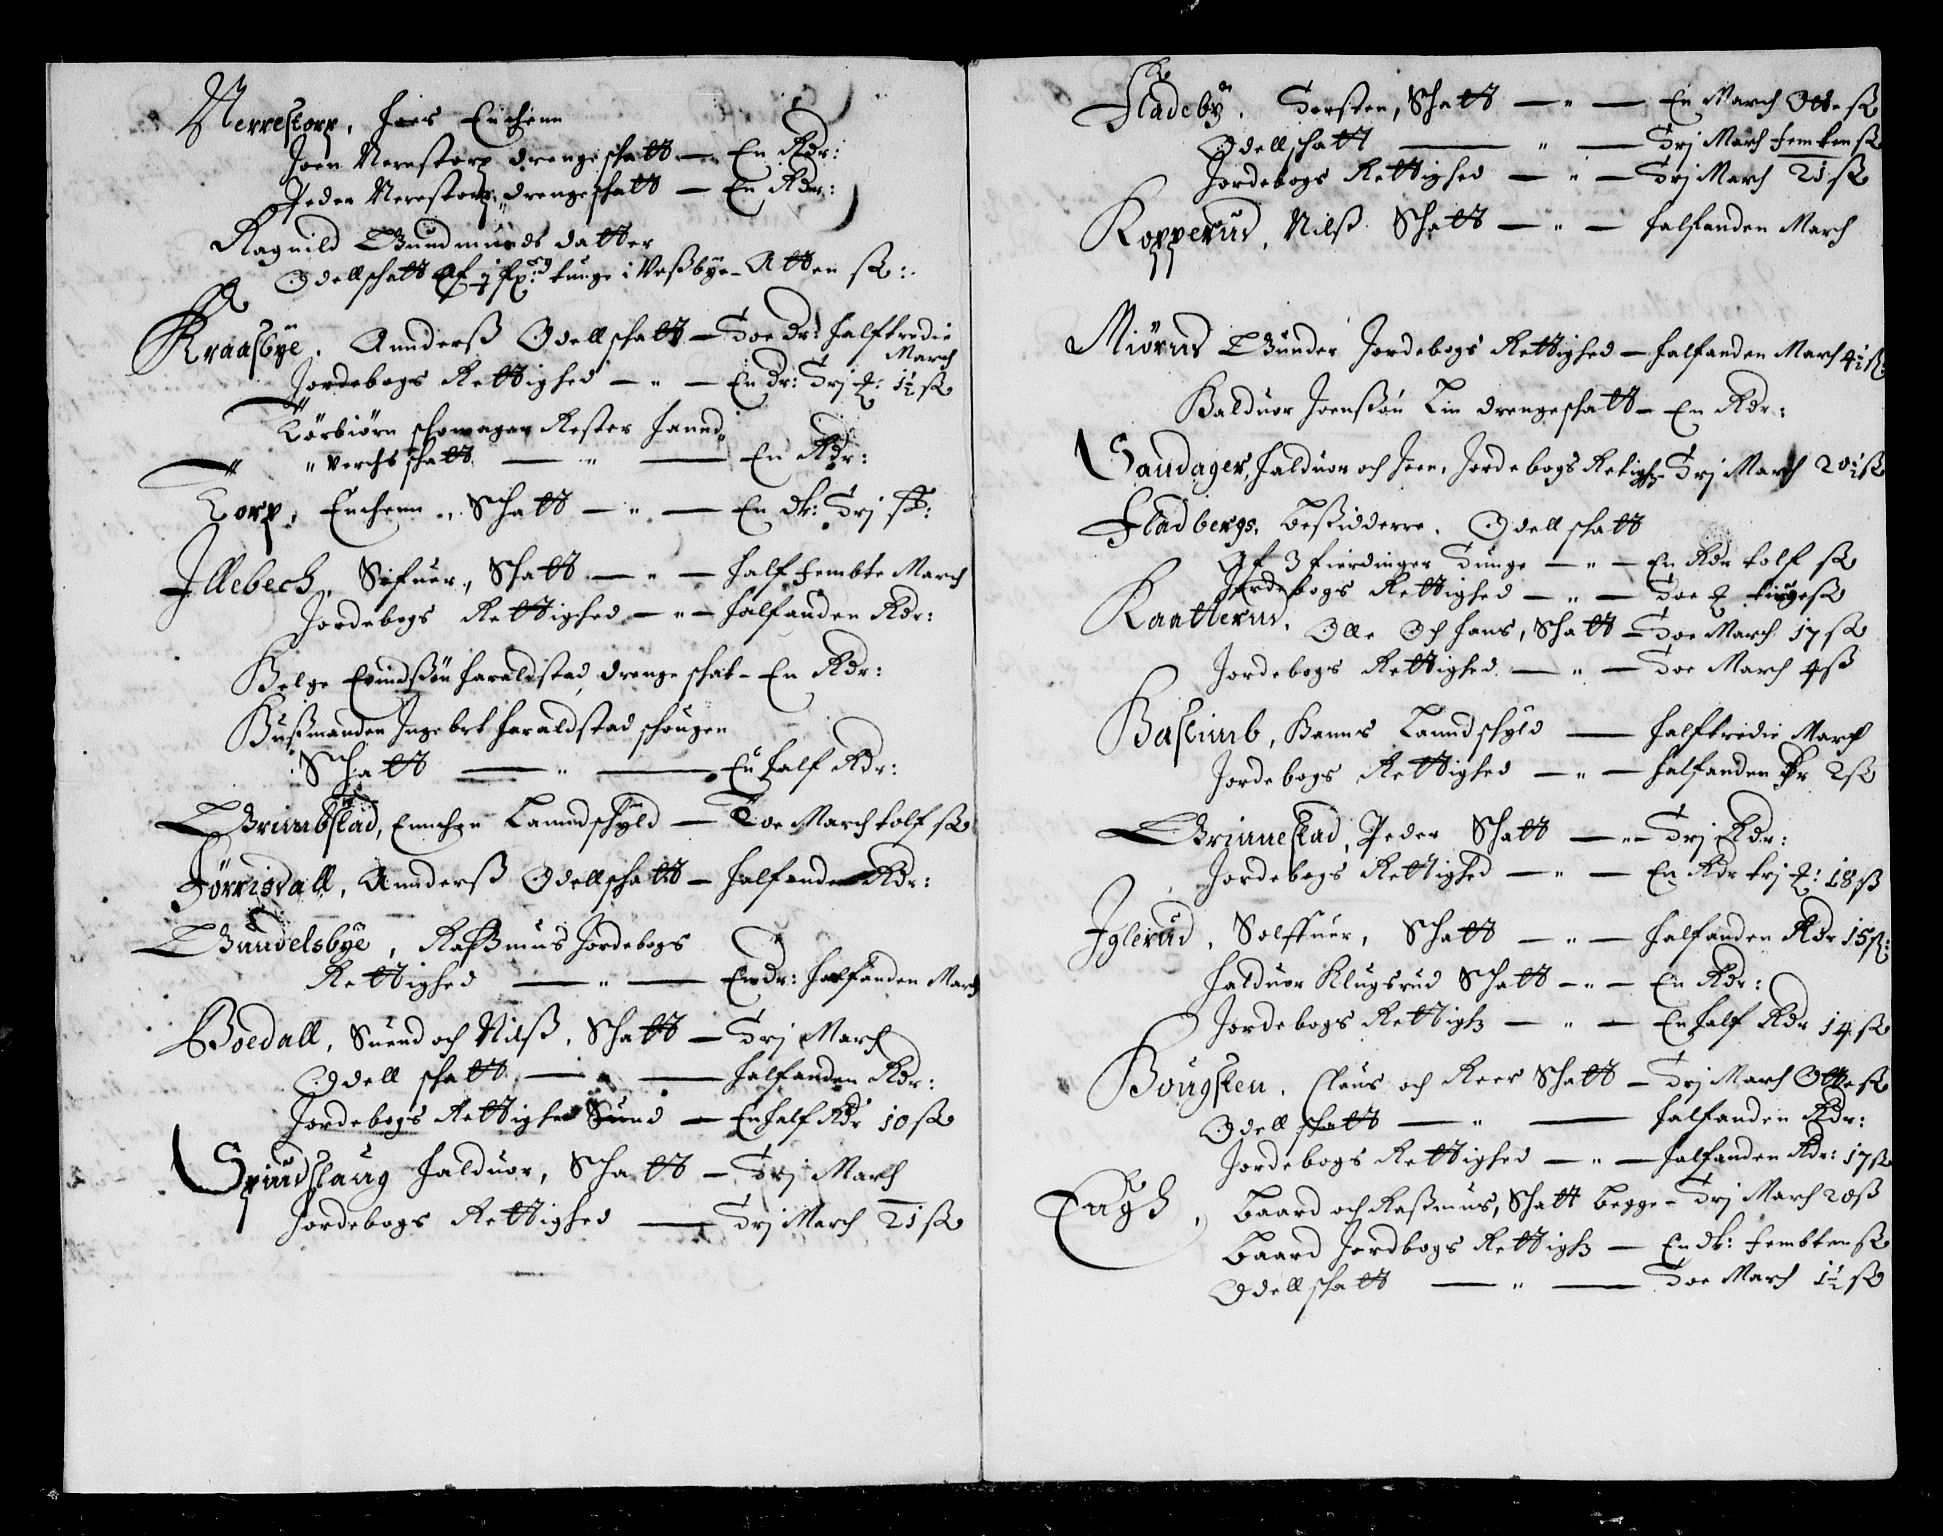 Nerrestorp, hoes Enchenn
Joen Nerestorp drengeschatt — En Rdr:
Peder Nerestorp drengeschatt — En Rdr:
Ragnild Gundmunds datter
Odellschatt Af tunge i Westbye - Atten sk:
Kraasbye, Annderss Odellschatt — Toe dr: halftredie
March
Jordebogs Rettighed — " — En dr: Trj 1½ sk
Torbiørn schomager
verchschatt — " — En Rdr:
Torp, Enchenn, Schatt — " — En dlr: Trj
Illebech, Sifuer, Schatt — " — half fembte March
Jordebogs Rettighed — " — halfanden Rdr:
Helge Evindssøn haraldstad drenge schat - En Rdr:
Hussmanden Ingebrt haraldstad schougen
Schatt — " — En half Rdr:
Grimbstad, Ennchen Lanndschyld — Toe March tolf sk
Førrisdall, Annderss Odellschatt — halfanden Rdr:
Gundelsbye, Rassmus Jordebogs
Rettighed — " — En dr: halfanden March
Boedall, Suend och Nilss, Schatt — Trj March
Odell schatt — " — halfanden Rdr:
Jordebogs Rettighed Suend — En half Rdr 10 sk
Spindslaug halduor, Schatt — Trj March
Jordebogs Rettighed — Trj March 21 sk
Fladeby, Torsten, Schatt — " — En March Otte sk
Odellschatt — " — Trj March femten sk
Jordebogs Rettighed — " — Trj March 21 sk
Kopperud, Nilss Schatt — " — halfanden March
Miørud Gunder Jordebogs Rettighed — halfanden March 4½ sk
Halduor Joenssøn Lin drengeschatt — En Rdr:
Sandager, halduor och Joen, Jordebogs Retigh - Trj March 20½ sk
Fladbergs, besidderre, Odell schatt
Af 3 fierdinger Tunge — " — En Rdr tolf sk
Jordebogs Rettighed — " — Toe tiuge sk
Kantterud, Olle Och hans, Schatt — Toe March 17 sk
Jordebogs Rettighed — " — Toe March 4 sk
Baslimb, Hanns Lanndschyld — halftredie March
Jordebogs Rettighed — " — halfanden 2 sk
Grinnestad, Peder Schatt — " — Trj Rdr:
Jordebogs Rettighed — " — En Rdr trj 18 sk
Iglerud, Solffuer, Schatt — " — halfanden Rdr 15 sk:
halduor Klugsrud Schatt — " — En Rdr:
Jordebogs Rettigh — " — En half Rdr 14 sk
Bougsten, Claus och Reer Schatt — Trj March Otte sk
Odellschatt — " — halfanden Rdr:
Jordebogs Rettighed — " — halfanden Rdr: 17 sk
Baard och Rassmus, Schatt begge - Trj March 20 sk
Baard Jordbogs Rettigh — En dlr: fembten sk
Odellschatt — " — Toe March 1½ sk